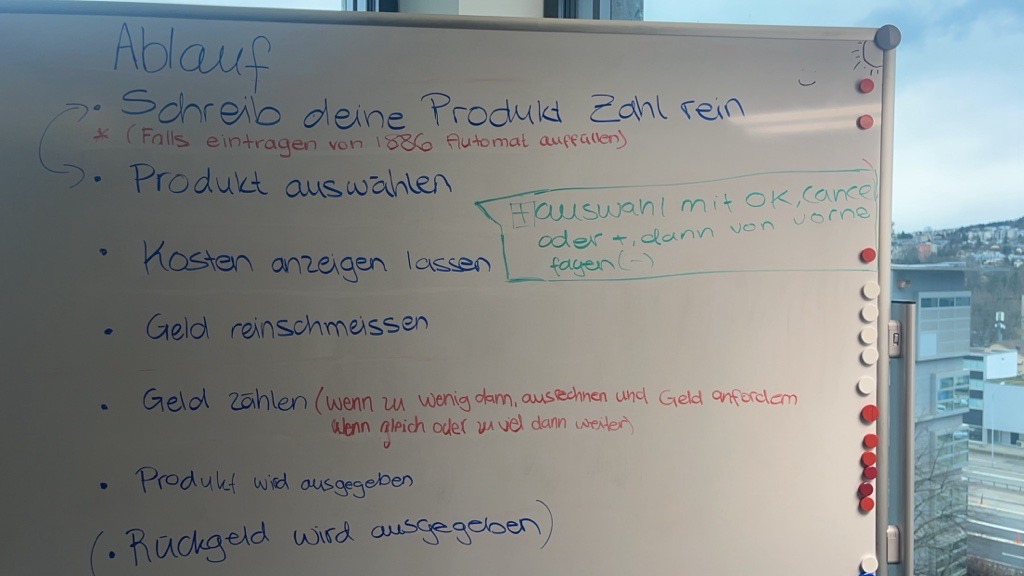 Ablauf
• Schreib deine Produkt Zahl rein
* (Falls eintragen von 1886 Automat auffüllen)
• Produkt auswählen
auswahl mit OK, cancel
oder +, dann von vorne
fagen (-)
• Kosten anzeigen lassen
• Geld reinschmeissen
• Geld zählen (wenn zu wenig dann, ausrechnen und Geld anfordern
wenn gleich oder zu viel dann weiter)
• Produkt wird ausgegeben
(• Rückgeld wird ausgegeben)